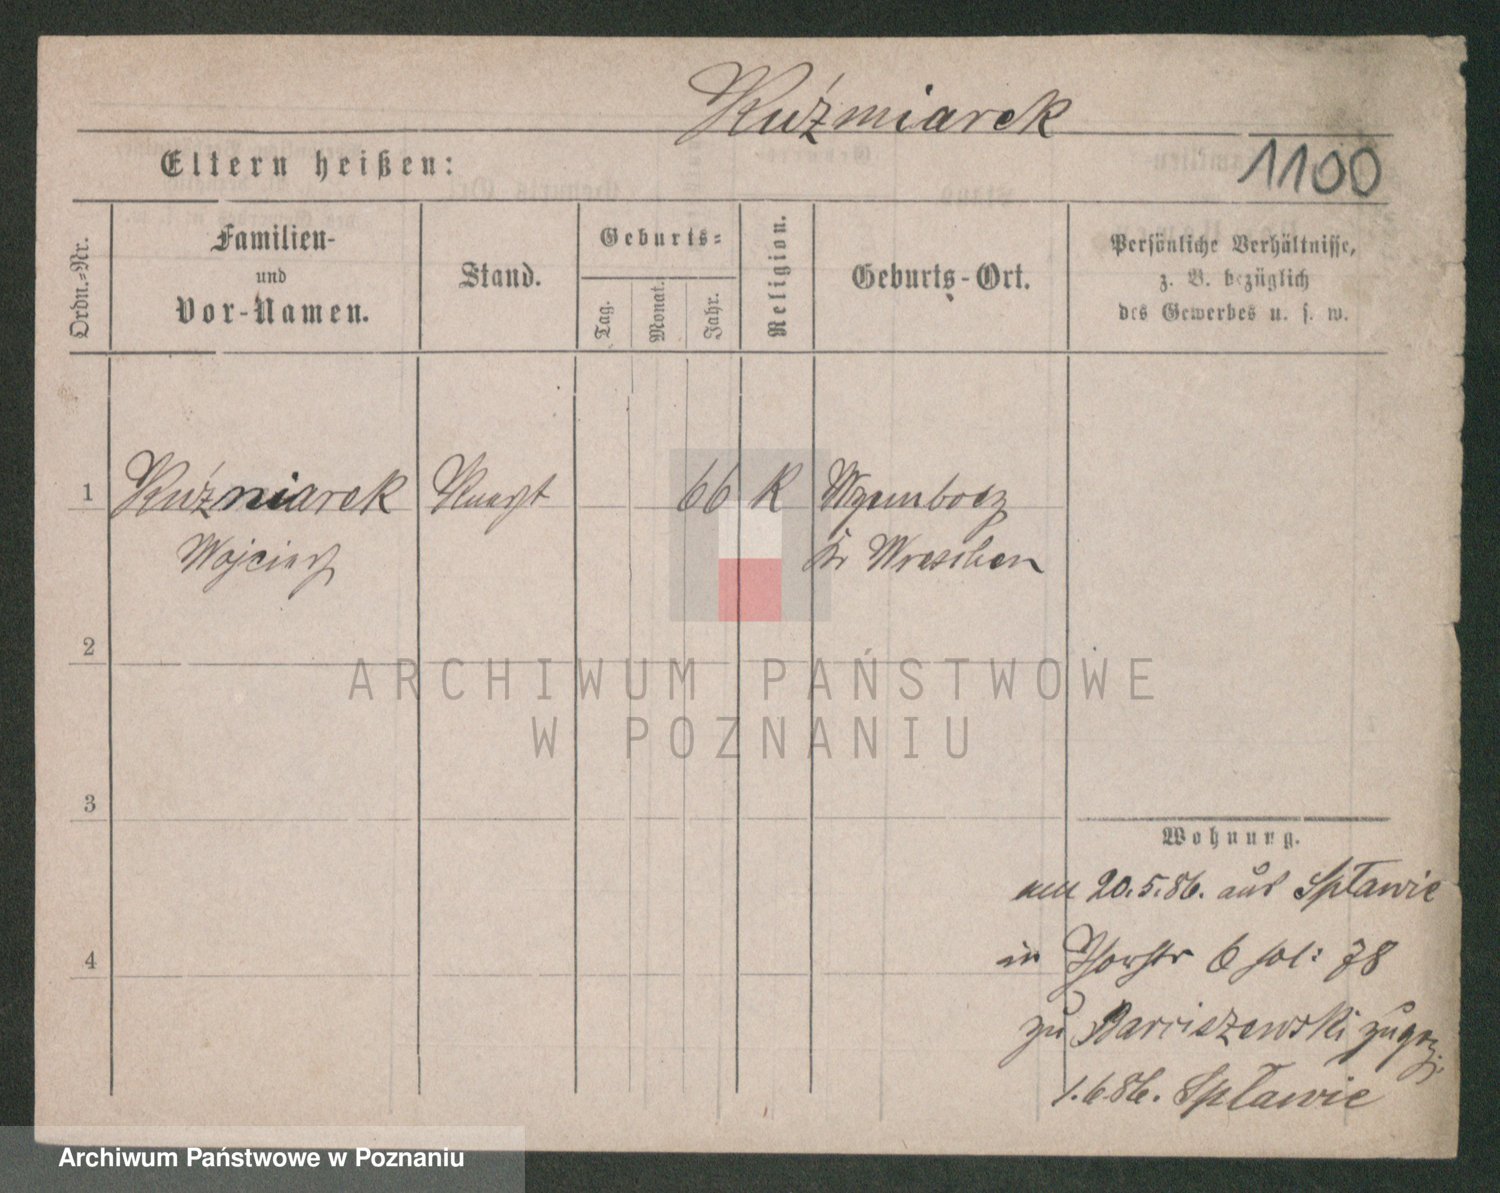 Kuźmiarek
Eltern heißen:
1100
Ordn.-Nr.
Familien-
und
Vor-Namen.
Stand.
Geburts-
Tag.
Monat.
Jahr.
Religion.
Geburts-Ort.
Persönliche Verhältnisse,
z. B. bezüglich
des Gewerbes u. s. w.
1 Kuźniarek Knecht 66 K
Wojciech Kr Wreschen
2
3
4
Wohnung.
am 20.5.86. aus Spławie
in 6 fol: 78
zu Barciszewski zugez.
1.6.86. Spławie
ARCHIWUM PAŃSTWOWE
W POZNANIU
Archiwum Państwowe w Poznaniu